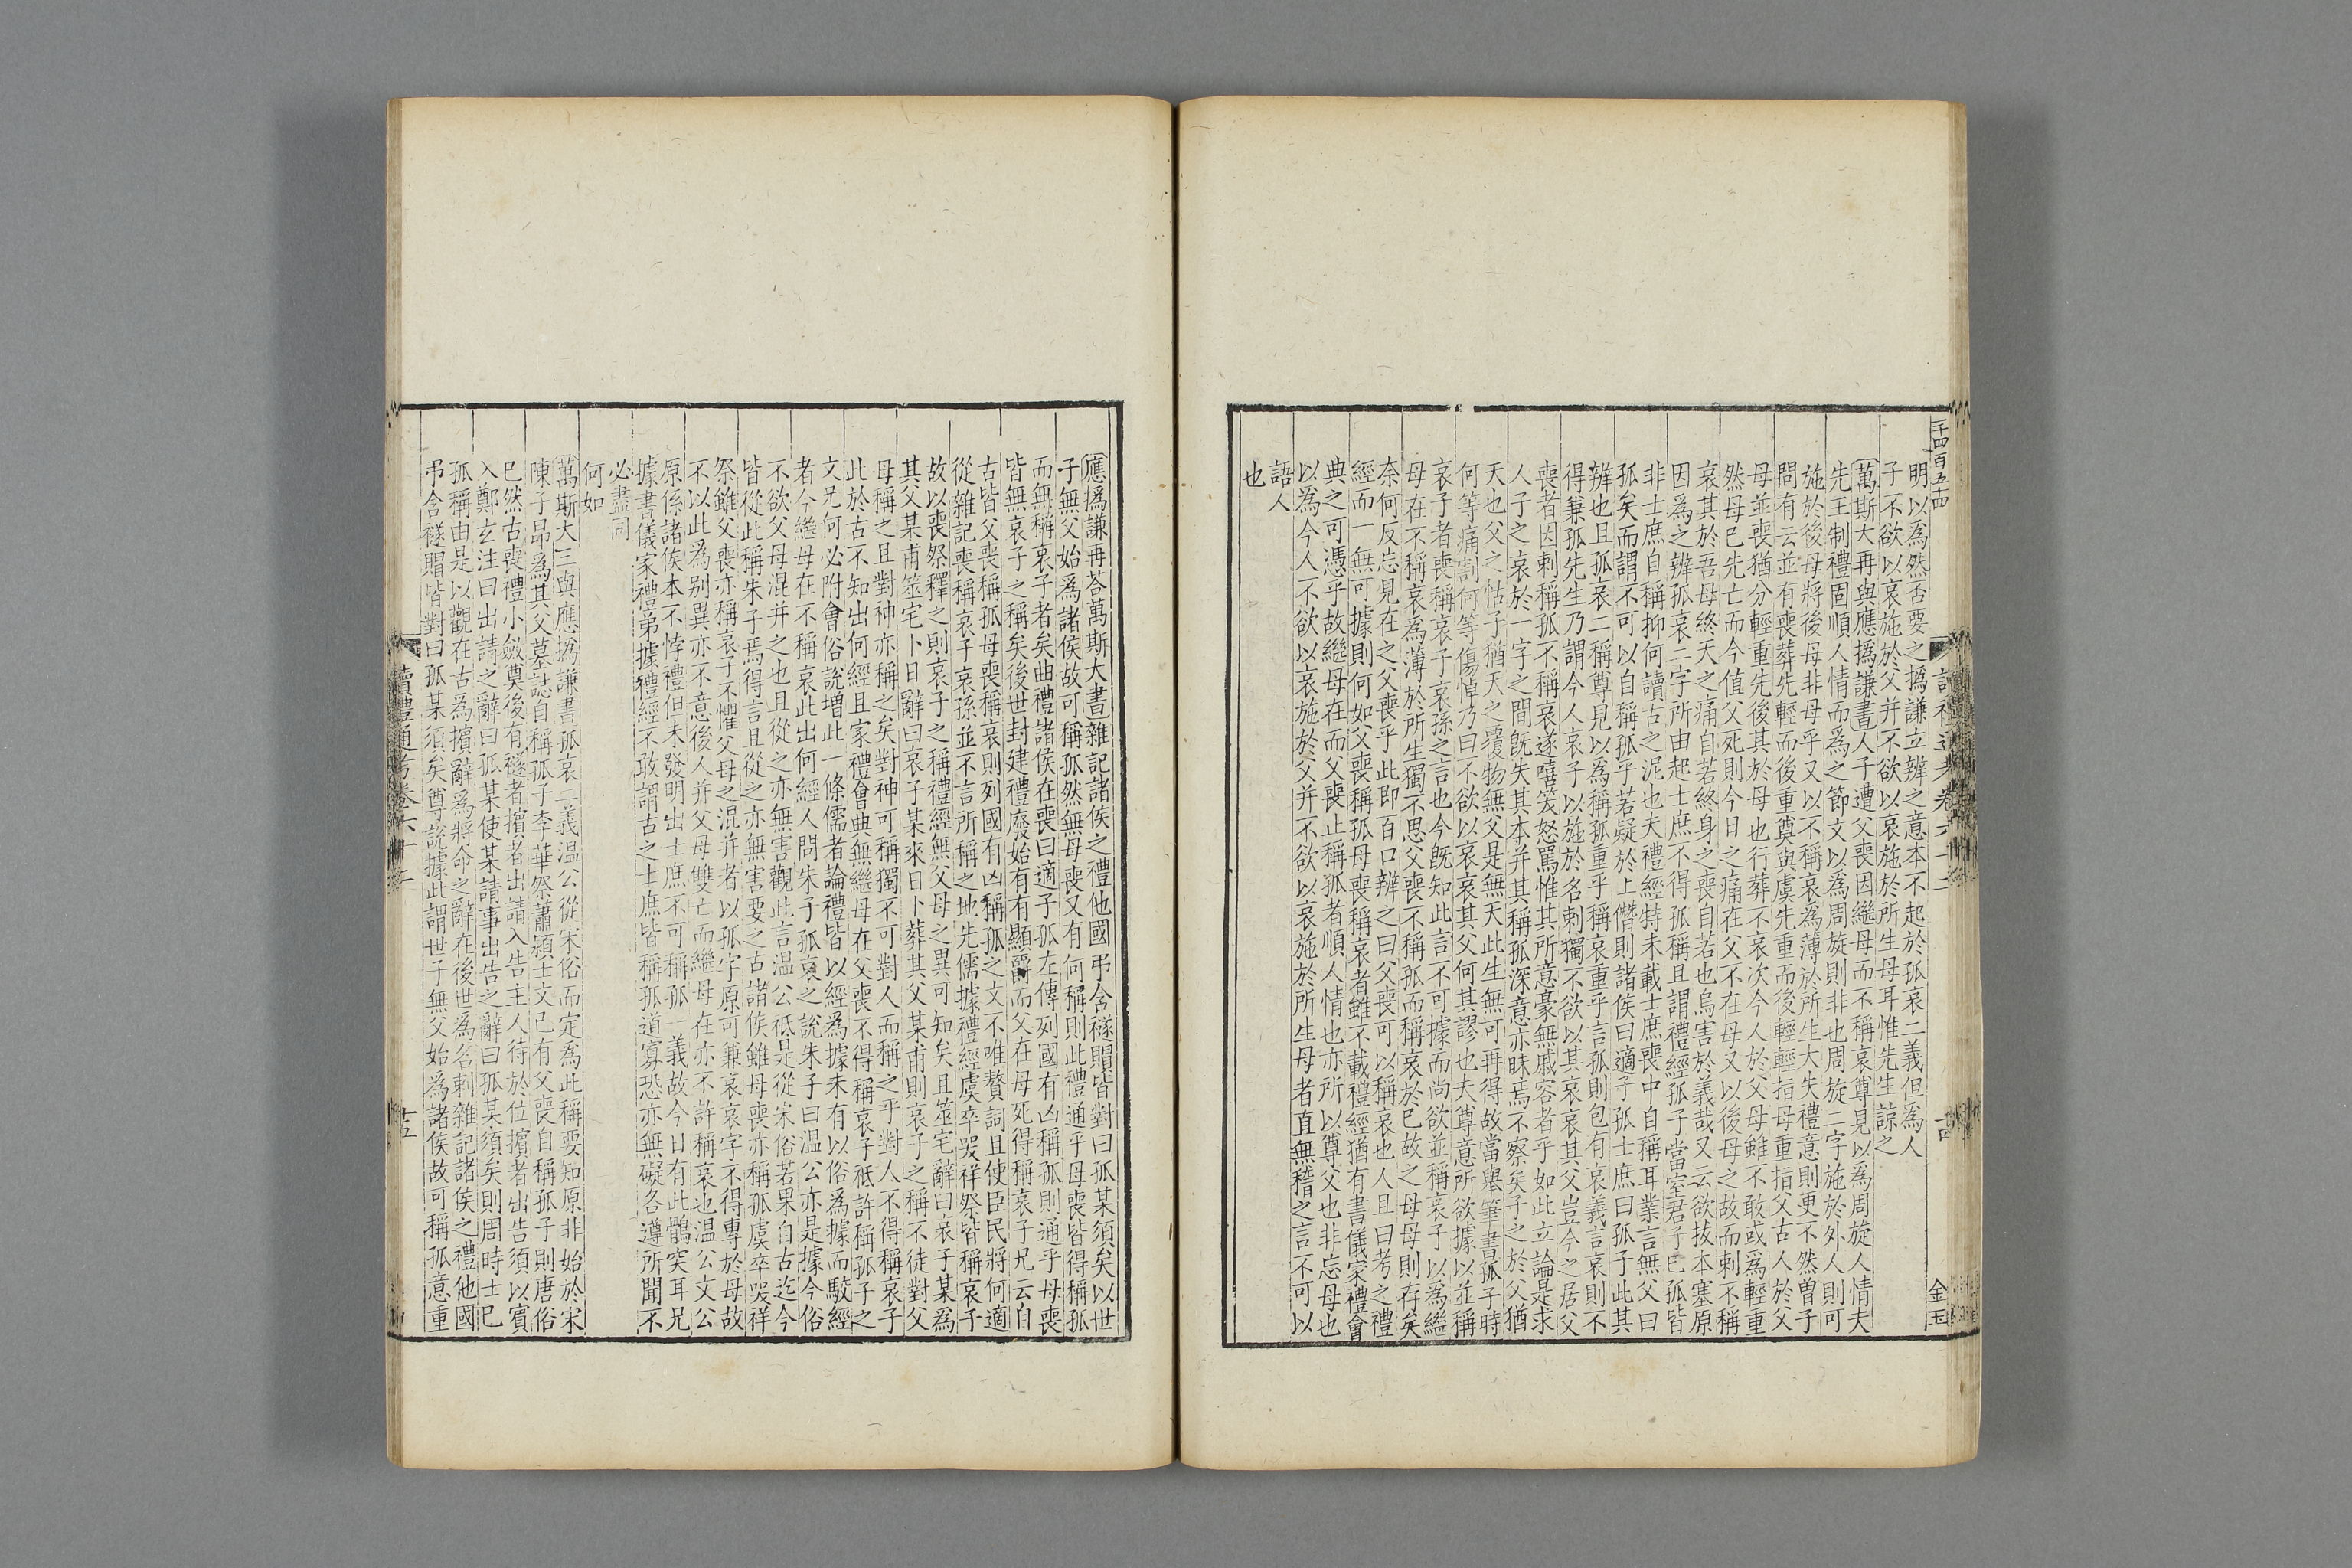 二千四百五十四
讀禮通考卷六十二
十四
金玉
明以為然否要之撝謙立辨之意本不起於孤哀二義但為人
子不欲以哀施於父并不欲以哀施於所生母耳惟先生諒之
萬斯大再與應撝謙書人子遭父喪因繼母而不稱哀尊見以為周旋人情夫
先王制禮固順人情而為之節文以為周旋則非也周旋二字施於外人則可
施於後母將後母非母乎又以不稱哀為薄於所生大失禮意則更不然曾子
問有云並有喪葬先輕而後重奠與虞先重而後輕輕指母重指父古人於父
母並喪猶分輕重先後其於母也行葬不哀次今人於父母雖不敢或為輕重
然母已先亡而今值父死則今日之痛在父不在母又以後母之故而刺不稱
哀其於吾母終天之痛自若終身之喪自若也烏害於義哉又云欲拔本塞原
因為之辨孤哀二字所由起士庶不得孤稱且謂禮經孤子當室君子已孤皆
非士庶自稱抑何讀古之泥也夫禮經特未載士庶喪中自稱耳業言無父曰
孤矣而謂不可以自稱孤乎若疑於上僭則諸侯曰適子孤士庶曰孤子此其
辨也且孤哀二稱尊見以為稱孤重乎稱哀重乎言孤則包有哀義言哀則不
得兼孤先生乃謂今人哀子以施於名刺獨不欲以其哀哀其父豈今之居父
喪者因刺稱孤不稱哀遂嘻笑怒罵惟其所意豪無戚容者乎如此立論是求
人子之哀於一字之間既失其本并其稱孤深意亦昧焉不察矣子之於父猶
天也父之怙子猶天之覆物無父是無天此生無可再得故當舉筆書孤子時
何等痛割何等傷悼乃曰不欲以哀哀其父何其謬也夫尊意所欲據以並稱
哀子者喪稱哀子哀孫之言也今既知此言不可據而尚欲並稱哀子以為繼
母在不稱哀為薄於所生獨不思父喪不稱孤而稱哀於已故之母母則存矣
奈何反忘見在之父喪乎此即百口辨之曰父喪可以稱哀也人且曰考之禮
經而一無可據則何如父喪稱孤母喪稱哀者雖不載禮經猶有書儀家禮會
典之可憑乎故繼母在而父喪止稱孤者順人情也亦所以尊父也非忘母也
以為今人不欲以哀施於父并不欲以哀施於所生母者直無稽之言不可以
語人
也
應撝謙再荅萬斯大書雜記諸侯之禮他國弔含襚賵皆對曰孤某須矣以世
子無父始為諸侯故可稱孤然無母喪又有何稱則此禮通乎母喪皆得稱孤
而無稱哀子者矣曲禮諸侯在喪曰適子孤左傳列國有凶稱孤則通乎母喪
皆無哀子之稱矣後世封建禮廢始有有顯爵而父在母死得稱哀子兄云自
古皆父喪稱孤母喪稱哀則列國有凶稱孤之文不唯贅詞且使臣民將何適
從雜記喪稱哀子哀孫並不言所稱之地先儒據禮經虞卒哭祥祭皆稱哀子
故以喪祭釋之則哀子之稱禮經無父母之異可知矣且筮宅辭曰哀子某為
其父某甫筮宅卜日辭曰哀子某來日卜葬其父某甫則哀子之稱不徒對父
母稱之且對神亦稱之矣對神可稱獨不可對人而稱之乎對人不得稱哀子
此於古不知出何經且家禮會典無繼母在父喪不得稱哀子祇許稱孤子之
文兄何必附會俗說增此一條儒者論禮皆以經為據未有以俗為據而駮經
者今繼母在不稱哀此出何經人問朱子孤哀之說朱子曰温公亦是據今俗
不欲父母混并之也且從之亦無害觀此言温公祗是從宋俗若果自古迄今
皆從此稱朱子焉得言且從之亦無害要之古諸侯雖母喪亦稱孤虞卒哭祥
祭雖父喪亦稱哀子不懼父母之混并者以孤字原可兼哀哀字不得專於母故
不以此為别異亦不意後人并父母雙亡而繼母在亦不許稱哀也温公文公
原係諸侯本不悖禮但未發明出士庶不可稱孤一義故今日有此鶻突耳兄
據書儀家禮弟據禮經不敢謂古之士庶皆稱孤道寡恐亦無礙各遵所聞不
必盡同
何如
萬斯大三與應撝謙書孤哀二義温公從宋俗而定為此稱要知原非始於宋
陳子昂為其父墓誌自稱孤子李華祭蕭潁士文已有父喪自稱孤子則唐俗
已然古喪禮小斂奠後有襚者擯者出請入告主人待於位擯者出告須以賓
入鄭玄注曰出請之辭曰孤某使某請事出告之辭曰孤某須矣則周時士已
孤稱由是以觀在古為擯辭為將命之辭在後世為名刺雜記諸侯之禮他國
弔含襚賵皆對曰孤某須矣尊說據此謂世子無父始為諸侯故可稱孤意重
讀禮通考卷六十二
十五